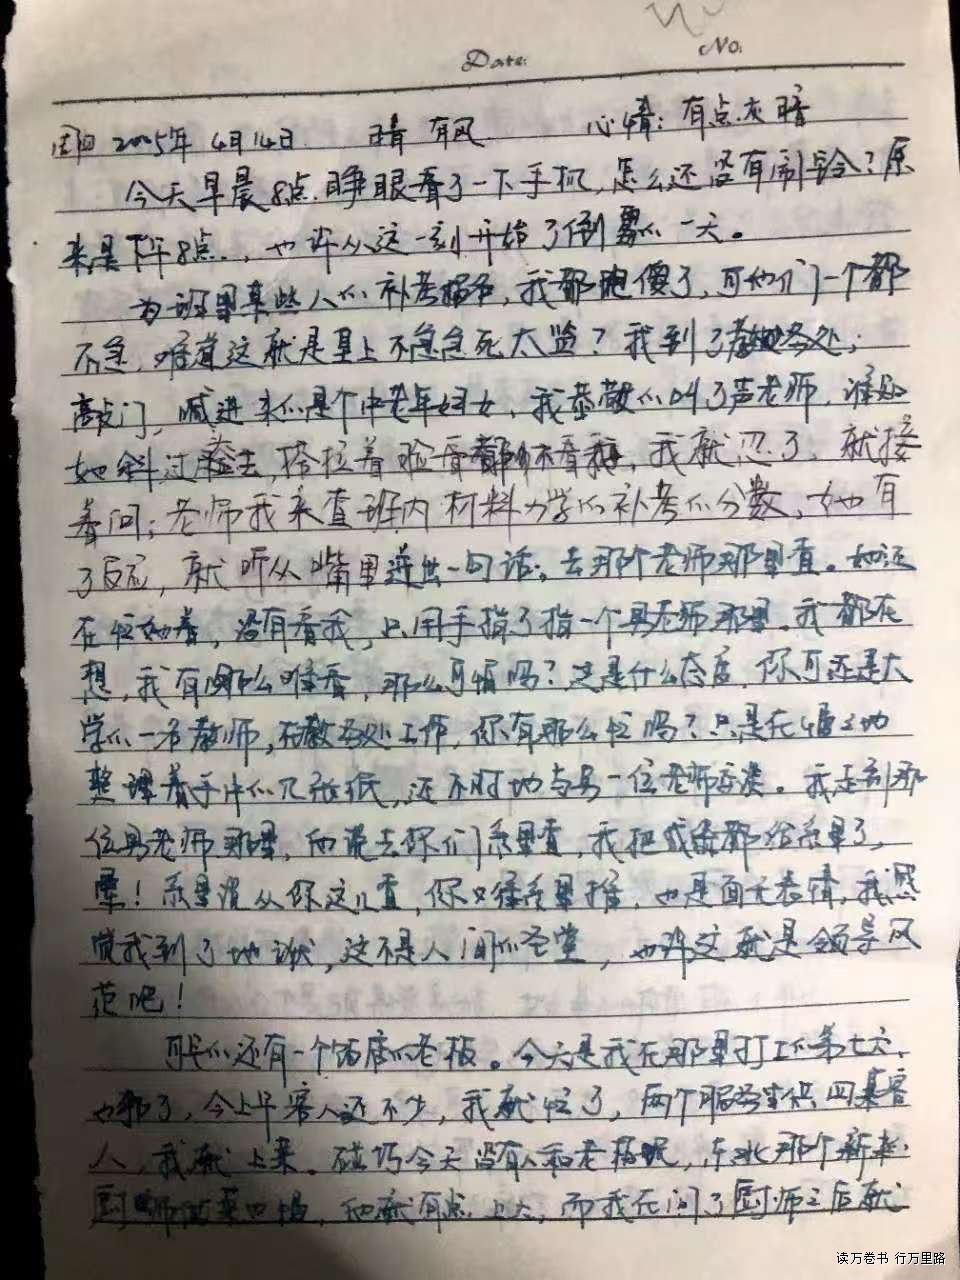 Date: No.
周四 2005年 4月14日 晴 有风 心情：有点灰暗
今天早晨8点.睁眼看了一下手机,怎么还没有闹铃？原
来是下午8点.,也许从这一刻开始了倒霉的一天。
为班里某些人的补考报名,我都跑傻了,可他们一个都
不急,难道这就是皇上不急急死太监？我到了教务处;
敲门,喊进来的是个中老年妇女,我恭敬的叫了声老师,谁知
她斜过脸去,搭拉着脸看都不看我,我就忍了,就接
着问;老师我来查班内材料力学的补考的分数,她有
了反应,就听从嘴里迸出一句话;去那个老师那里查。她还
在忙她着,没有看我,只用手指了指一个男老师那里。我都在
想,我有那么难看,那么可怕吗？这是什么态度,你可还是大
学的一名教师,在教务处工作,你有那么忙吗？只是在慢
整理着手中的几张纸,还不时地与另一位老师交谈。我走到那
位男老师那里,而说去你们系里查,我把成绩都给系里了,
晕！系里没从你这儿查,你又往系里推,也是面无表情,我感
觉我到了地狱,这不是人间的圣堂,也许这就是领导风
范吧！
可气的还有一个饭店的老板。今天是我在那里打工的第七天,
也邪了,今上午客人还不少,我就忙了,两个服务生供四桌客
人,我就上菜。碰巧今天没有人和老板呢,东北那个新来
厨师做菜,而我在问了厨师之后就